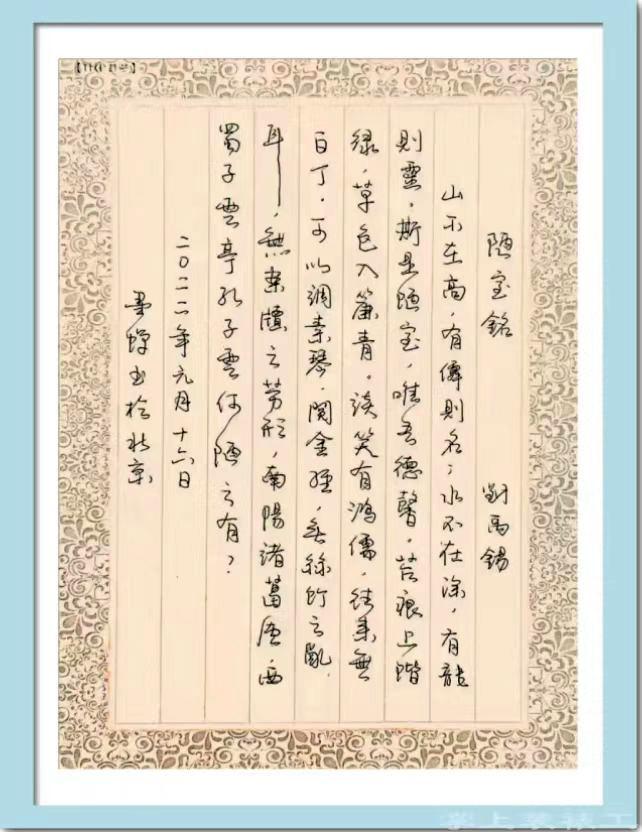 陋室銘 劉禹錫
山不在高，有僊則名；水不在深，有龍
則靈。斯是陋室，唯吾德馨。苔痕上階
綠，草色入簾青。談笑有鴻儒，往來無
白丁。可以調素琴，閱金經，無絲竹之亂
耳，無案牘之勞形，南陽諸葛廬西
蜀子雲亭孔子雲何陋之有？
二〇二二年元月十六日
書於北京